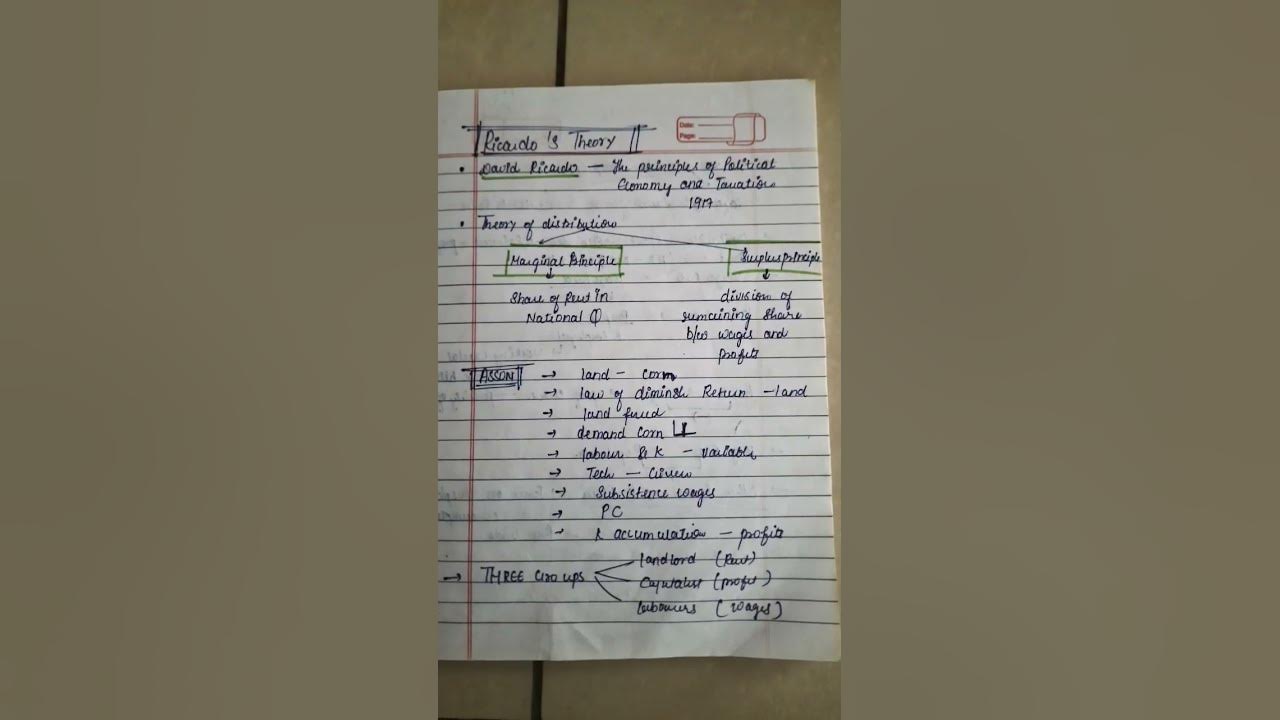 Date:
Page:
Ricardo's Theory
• David Ricardo — The principles of Political
Economy and Taxation
1917
• Theory of distribution
Marginal Principle
Surplus principle
Share of Rent in
National
division of
remaining share
b/w wages and
profits
ASSON → land - corn
→ law of diminish Return - land
→ land fixed
→ demand corn
→ labour & K - variable
→ Tech - Given
→ Subsistence wages
→ PC
→ K accumulation - profits
→ THREE Groups
landlord (Rent)
Capitalist (profit)
labourers (wages)